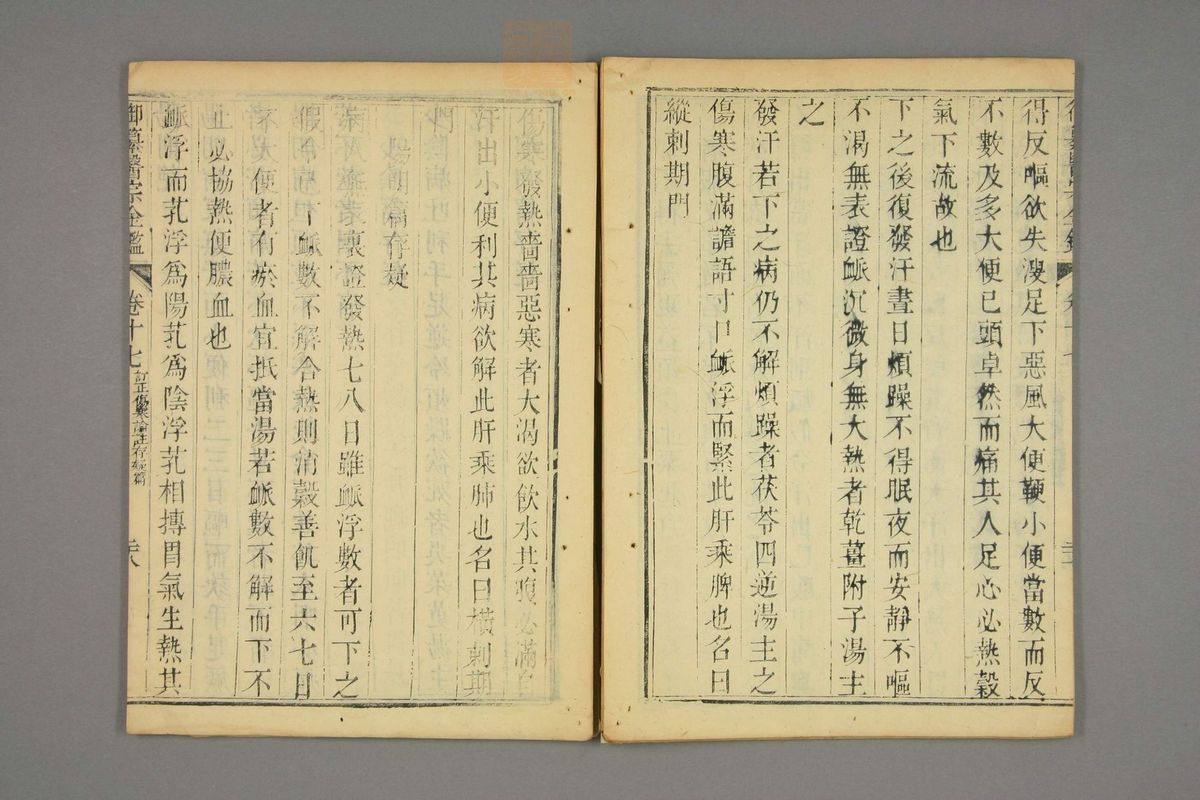 得反嘔欲失溲足下惡風大便鞕小便當數而反
不數及多大便已頭卓然而痛其人足心必熱穀
氣下流故也
下之後復發汗晝日煩躁不得眠夜而安靜不嘔
不渴無表證脈沉微身無大熱者乾薑附子湯主
之
發汗若下之病仍不解煩躁者茯苓四逆湯主之
傷寒腹滿譫語寸口脈浮而緊此肝乘脾也名曰
縱刺期門
傷寒發熱嗇嗇惡寒者大渴欲飲水其腹必滿自
汗出小便利其病欲解此肝乘肺也名曰橫刺期
門
陽明篇存疑
病人無表裏證發熱七八日雖脈浮數者可下之
假令已下脈數不解合熱則消穀善飢至六七日
不大便者有瘀血宜抵當湯若脈數不解而下不
止必協熱便膿血也
脈浮而芤浮為陽芤為陰浮芤相摶胃氣生熱其
御纂醫宗金鑑 卷十七 訂正傷寒論註存疑篇 二十八